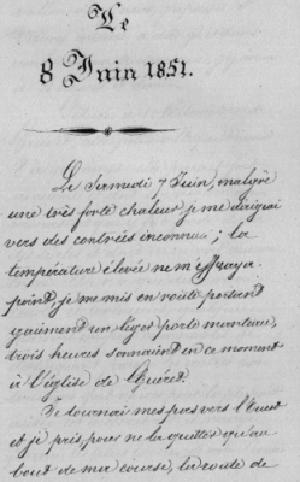 Le
8 Juin 1851.
Le Samedi 7 Juin, malgré
une très forte chaleur, je me dirigeai
vers des contrées inconnues ; la
température élevée ne m'effraya
point, je me mis en route portant
gaiment un léger porte manteau,
trois heures sonnaient en ce moment
à l'église de Guéret.
Je tournai mes pas vers l'Ouest
et je pris, pour ne la quitter qu'au
bout de ma course, la route de